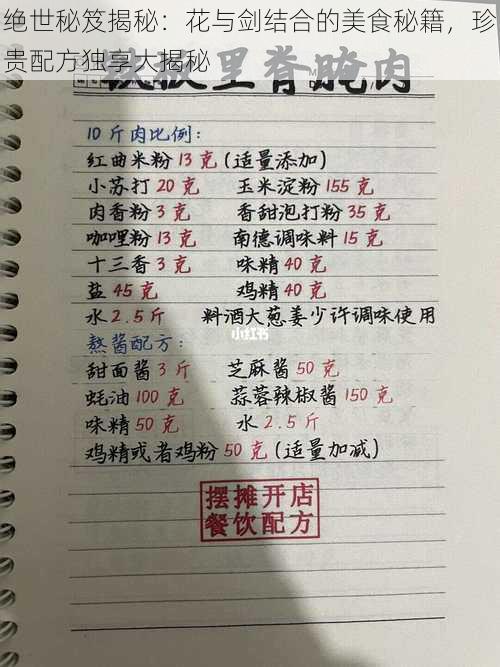 绝世秘笈揭秘：花与剑结合的美食秘籍，珍
贵配方独享大揭秘
铁板里脊腌肉
10斤肉比例：
红曲米粉13克(适量添加)
小苏打20克 玉米淀粉155克
肉香粉3克 香甜泡打粉35克
咖哩粉13克 南德调味料15克
十三香3克 味精40克
盐45克 鸡精40克
水2.5斤 料酒大葱姜少许调味使用
小红书
熬酱配方：
甜面酱3斤 芝麻酱50克
蚝油100克 蒜蓉辣椒酱150克
味精50克 水2.5斤
鸡精或者鸡粉50克(适量加减)
摆摊开店
餐饮配方